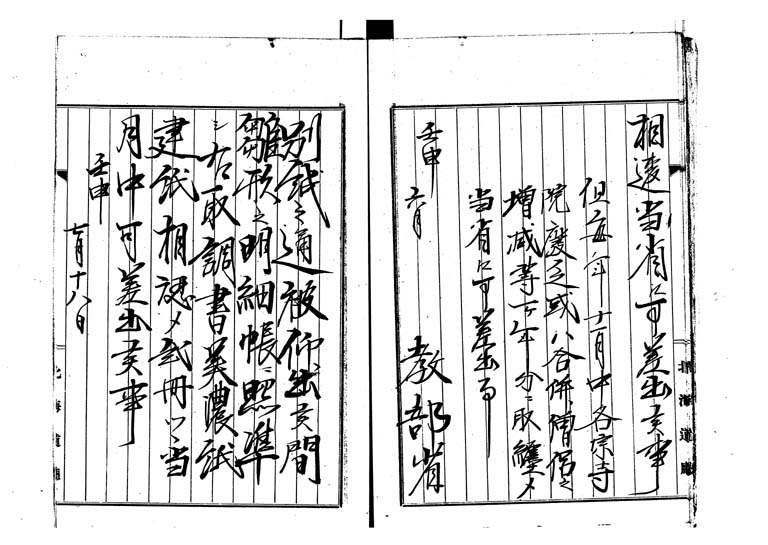 相違当省江可差出候事
但毎年十二月中各宗寺
院廃立或ハ合併僧侶之
増減等一ケ年分ニ取纏メ
当省江可差出事
壬申
六月
教部省
北海道庁
別紙之通被仰出候間
雛形之明細帳ニ照準
シ右取調書美濃紙
建紙相認メ弐冊ツヽ当
月中可差出候事
壬申
七月十八日
北海道庁